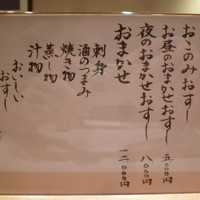 おこのみおすし
お昼のおまかせおすし 五、〇〇〇円
夜のおまかせおすし 八、〇〇〇円
おまかせ 一二、〇〇〇円
刺身
酒のつまみ
焼き物
蒸し物
汁物
おいしい
おすし